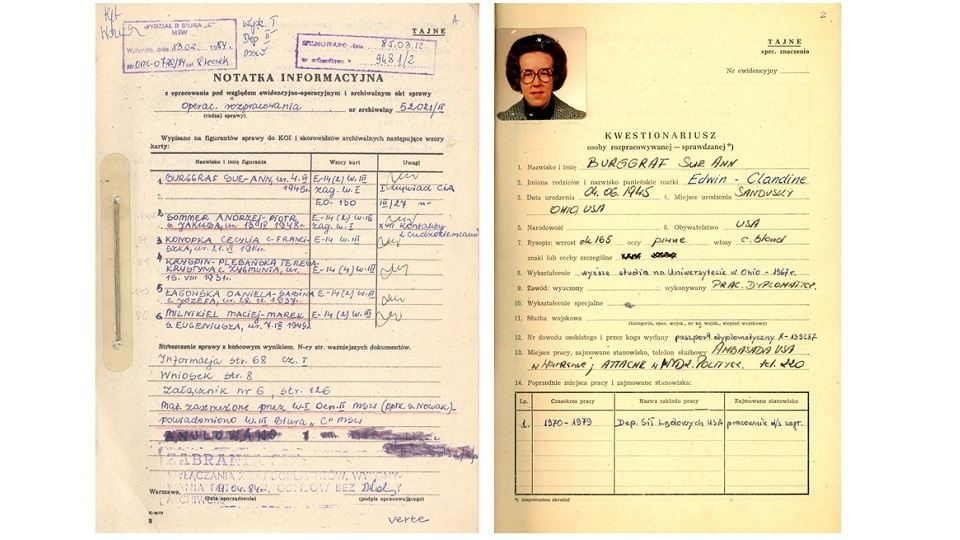 A
TAJNE
WYDZIAŁ II BIURA „C"
MSW
dnia 13.02. 1984 r.
Dep II
MSW
85.03.12
9481/2
NOTATKA INFORMACYJNA
z opracowania pod względem ewidencyjno-operacyjnym i archiwalnym akt sprawy
Operac. rozpracowania nr archiwalny 52021/II
(rodzaj sprawy)
Wypisano na figurantów sprawy do KOI i skorowidzów archiwalnych następujące wzory
karty:
Nazwisko i imię figuranta Wzory kart Uwagi
1. BURGGRAF SUE-ANN, ur. 4.VI E-14(2) w.III
1945r. zag. w. I wywiad CIA
EO-130 III/27
2. SOMMER ANDRZEJ-PIOTR E-14(2) w.III
s. JAKUBA, ur. 1948r. zag. w. I kontakty
z cudzoziemcami
3. KONOPKA CECYLIA c. FRANCI- E-14 w.III
SZKA, ur. 21.VI 1914r.
4. KRYSPIN-PLEBAŃSKA TERESA-
KRYSTYNA c. ZYGMUNTA, ur. E-14(4) w.III
15. VIII 1931r.
5. ŁAGOŃSKA DANIELA-SABINA E-14(2) w.III
c. JÓZEFA, ur. 28.12.1937r.
6. MILNIKIEL MACIEJ-MAREK E-14(2) w.III
s. EUGENIUSZA, ur. 7.IX 1949r.
Streszczenie sprawy z końcowym wynikiem. N-ry str. ważniejszych dokumentów.
Informacja str. 68 cz. I
Wniosek str. 8
Załącznik nr 6, str. 126
Mat. zastrzeżone przez w. I Dep. II MSW (ppłk. S. Nowak)
powiadomiono w. III Biura „C" MSW
ANULOWANO
ZABRANIA SIĘ
WYŁĄCZANIA DOKUMENTÓW, WYKONY-
WANIA BEZ
Warszawa, 11.04.84r.
(data sporządzenia) (podpis opracowującego)
verte
2
TAJNE
spec. znaczenia
Nr ewidencyjny
KWESTIONARIUSZ
osoby rozpracowywanej — sprawdzanej *)
1. Nazwisko i imię BURGGRAF SUE ANN
2. Imiona rodziców i nazwisko panieńskie matki Edwin - Clandine
3. Data urodzenia 04.06.1945 4. Miejsce urodzenia SANDUSKY
OHIO, USA
5. Narodowość 6. Obywatelstwo USA
7. Rysopis: wzrost ok 165 oczy piwne włosy c. blond
znaki lub cechy szczególne
8. Wykształcenie wyższe studia na Uniwersytecie w Ohio - 1967r.
9. Zawód: wyuczony wykonywany PRAC. DYPLOMATYCZ.
10. Wykształcenie specjalne
11. Służba wojskowa
(kategoria, spec. wojsk., nr ks. wojsk., stopień wojskowy)
12. Nr dowodu osobistego i przez kogo wydany paszport dyplomatyczny X-139267
13. Miejsce pracy, zajmowane stanowisko, telefon służbowy AMBASADA USA
w Warszawie, ATTACHE w WYDZ. POLITYCZ. tel. 220
14. Poprzednie miejsca pracy i zajmowane stanowiska:
Lp. Czasokres pracy Nazwa zakładu pracy Zajmowane stanowisko
1. 1970-1979 Dep. Sił Lądowych USA pracownik d/s zagr.
*) niepotrzebne skreślić